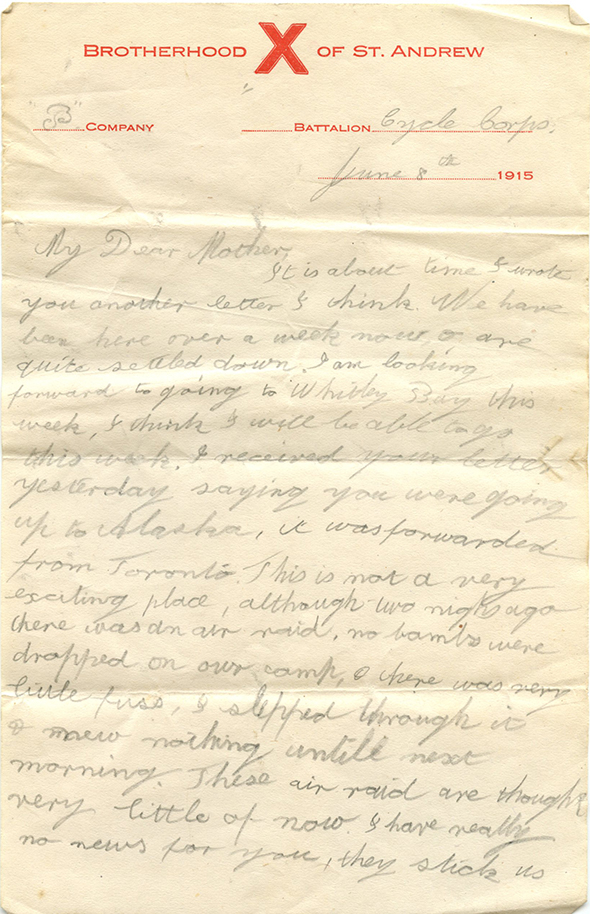 BROTHERHOOD X OF ST. ANDREW
"B" COMPANY BATTALION Cycle Corps.
June 8th 1915
My Dear Mother,
It is about time I wrote
you another letter I think. We have
been here over a week now, & are
quite settled down. I am looking
forward to going to Whitley Bay this
week, I think I will be able to go
this week. I received your letter
yesterday saying you were going
up to Alaska, it was forwarded
from Toronto. This is not a very
exciting place, although two nights ago
there was an air raid, no bombs were
dropped on our camp, & there was very
little fuss, I slepped through it
& knew nothing untill next
morning. These air raid are thought
very little of now. I have really
no news for you, they stick us